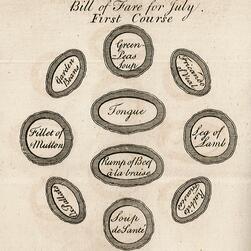 Bill of Fare for July.
First Course
Green
Peas
Soup
Garden
Beans
Fricando
Veal
Tongue
Fillet of
Mutton
Leg of
Lamb
Rump of Beef
à la braise
Sallads
Rabbits
Soup
de Santé